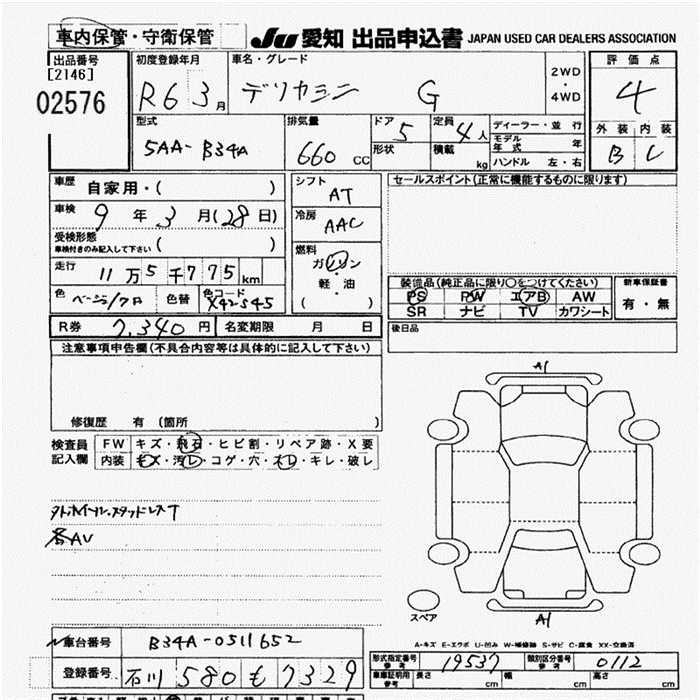 車内保管・守衛保管
Ju 愛知 出品申込書 JAPAN USED CAR DEALERS ASSOCIATION
出品番号
[2146]
02576
初度登録年月
R6 3月
車名・グレード
デリカミニ G
2WD
・
4WD
評価点
4
外装 内装
B C
型式
5AA-B34A
排気量
660 CC
ドア 5
形状
定員 4人
積載 kg
ディーラー・並行
モデル年式 年
ハンドル 左・右
車歴 自家用・( )
車検 9年3月(28日)
受検形態
車検付きのみ記入して下さい ( )
走行 11万5千775km
色 ベージ/クロ 色替 色コード X42-S45
シフト AT
冷房 AAC
燃料
ガソリン
・
軽・油
・
( )
セールスポイント(正常に機能するものに限ります)
装備品(純正品に限り○をつけてください)
PS PW エアB AW
SR ナビ TV カワシート
新車保証書
有・無
R券 7,340円 名変期限 月 日
後日品
注意事項申告欄(不具合内容等は具体的に記入して下さい)
修復歴 有 (箇所 )
検査員記入欄
FW キズ・飛石・ヒビ割・リペア跡・X要
内装 キズ・汚レ・コゲ・穴・スレ・キレ・破レ
各AU
A1
A1
cm cm
cm cm
スペア
A-キズ E-エクボ U-凹み W-補修跡 S-サビ C-腐食 XX-交換済
車台番号 B34A-0511652
登録番号 石川 580 も 7329
形式指定番号 参考 19537
類別区分番号 参考 0112
車庫証明用 参考 長さ cm 幅 cm 高さ cm